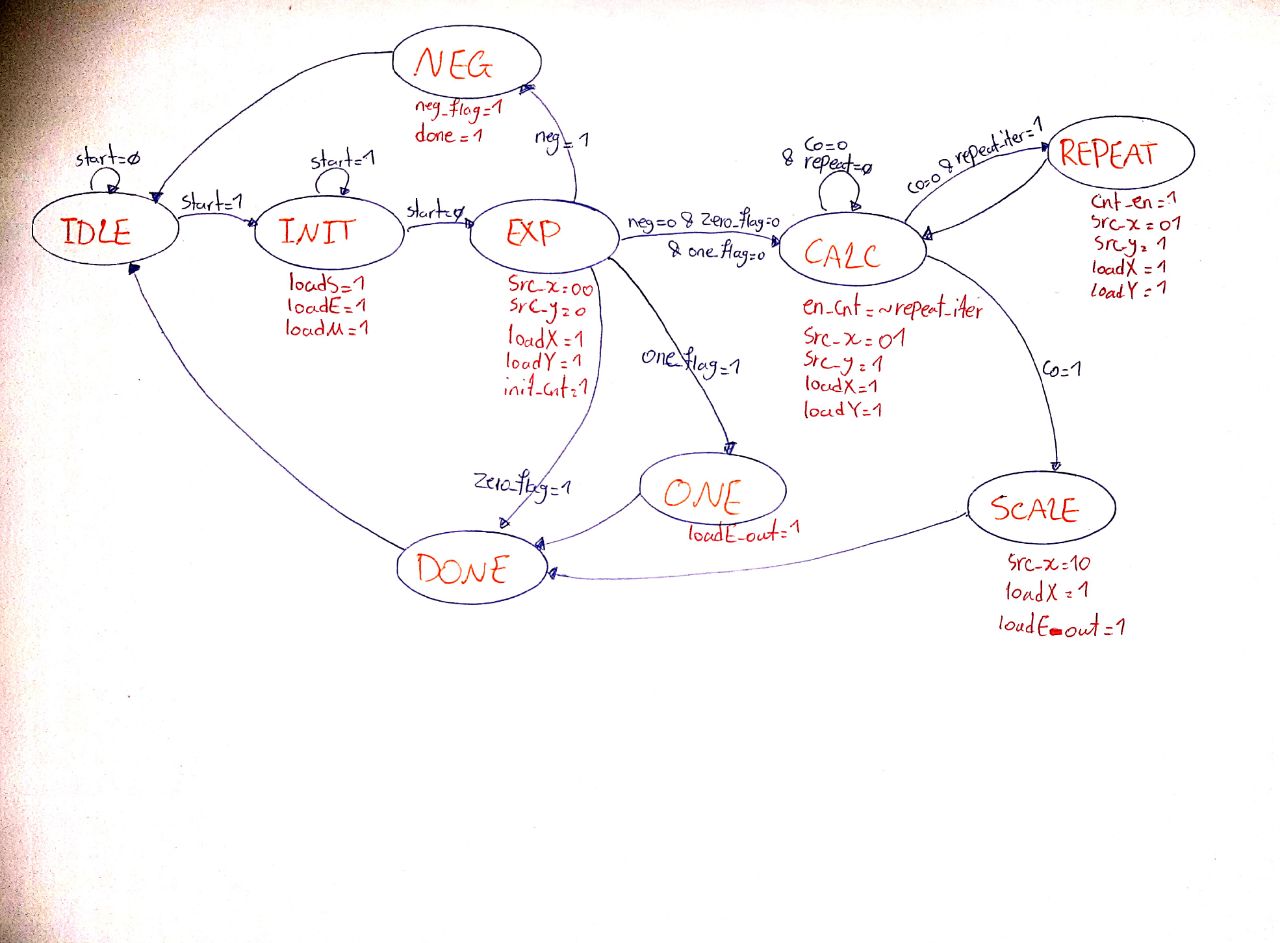 NEG
neg_flag=1
done=1
neg=1
start=ø
IDLE
start=1
start=1
INIT
loadS=1
loadE=1
loadM=1
start=ø
EXP
src_x=00
src_y=0
loadX=1
loadY=1
init_cnt=1
neg=0 & zero_flag=0
& one_flag=0
co=0
& repeat=ø
CALC
en_cnt=~repeat_iter
src_x=01
src_y=1
loadX=1
loadY=1
co=0 & repeat-iter=1
REPEAT
cnt_en=1
src_x=01
src_y=1
loadX=1
loadY=1
one_flag=1
co=1
zero_flag=1
ONE
loadE_out=1
DONE
SCALE
src_x=10
loadX=1
loadE_out=1